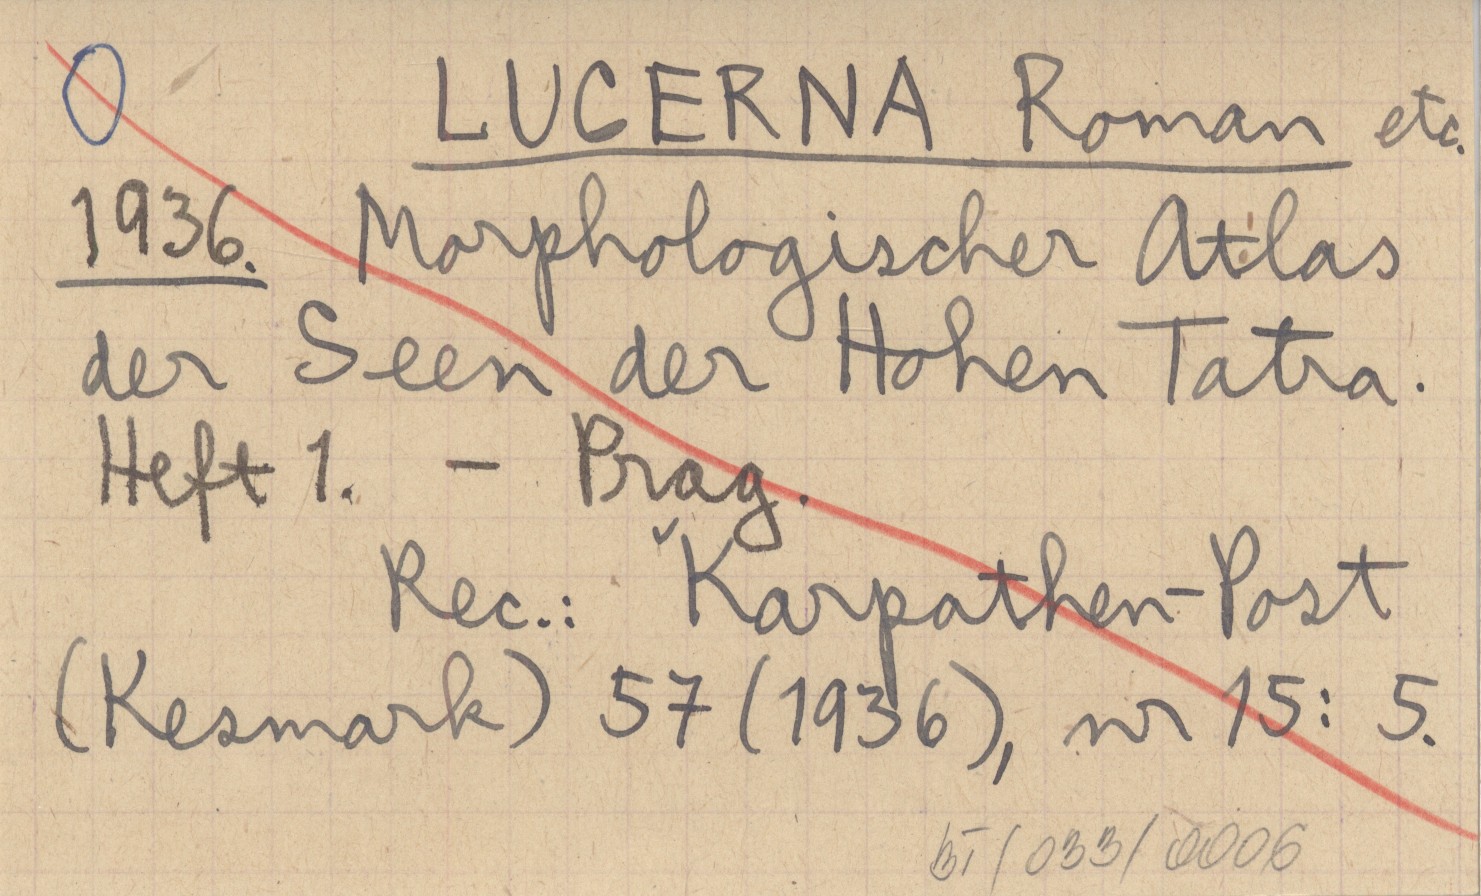 LUCERNA Roman etc.
1936. Morphologischer Atlas
der Seen der Hohen Tatra.
Heft 1. - Prag.
Rec.: Karpathen-Post
(Kesmark) 57 (1936), nr 15: 5.
BT/033/0006